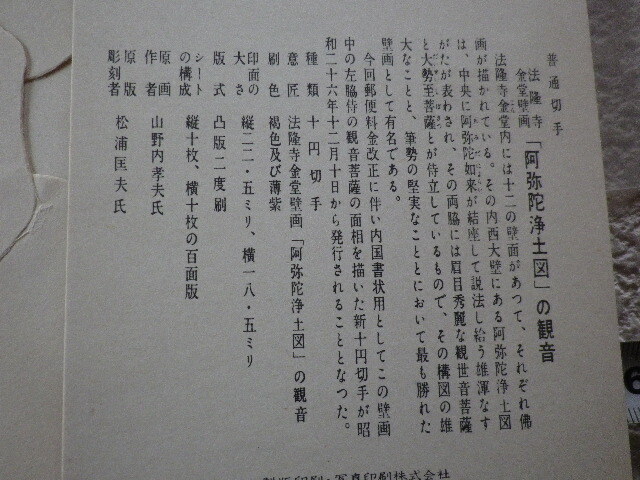 普通切手
法隆寺
金堂壁画「阿弥陀浄土図」の観音
法隆寺金堂内には十二の壁面があつて、それぞれ佛
画が描かれている。その内西大壁にある阿弥陀浄土図
は、中央に阿弥陀如来が結座して説法し給う雄渾なす
がたが表わされ、その両脇には眉目秀麗な観世音菩薩
と大勢至菩薩とが侍立しているもので、その構図の雄
大なことと、筆勢の堅実なこととにおいて最も勝れた
壁画として有名である。
今回郵便料金改正に伴い内国書状用としてこの壁画
中の左脇侍の観音菩薩の面相を描いた新十円切手が昭
和二十六年十二月十日から発行されることとなつた。
種類 十円切手
意匠 法隆寺金堂壁画「阿弥陀浄土図」の観音
刷色 褐色及び薄紫
印面の大さ 縦二二・五ミリ、横一八・五ミリ
版式 凸版二度刷
シートの構成 縦十枚、横十枚の百面版
原画作者 山野内孝夫氏
原版彫刻者 松浦匡夫氏
製版印刷・写真印刷株式会社
6